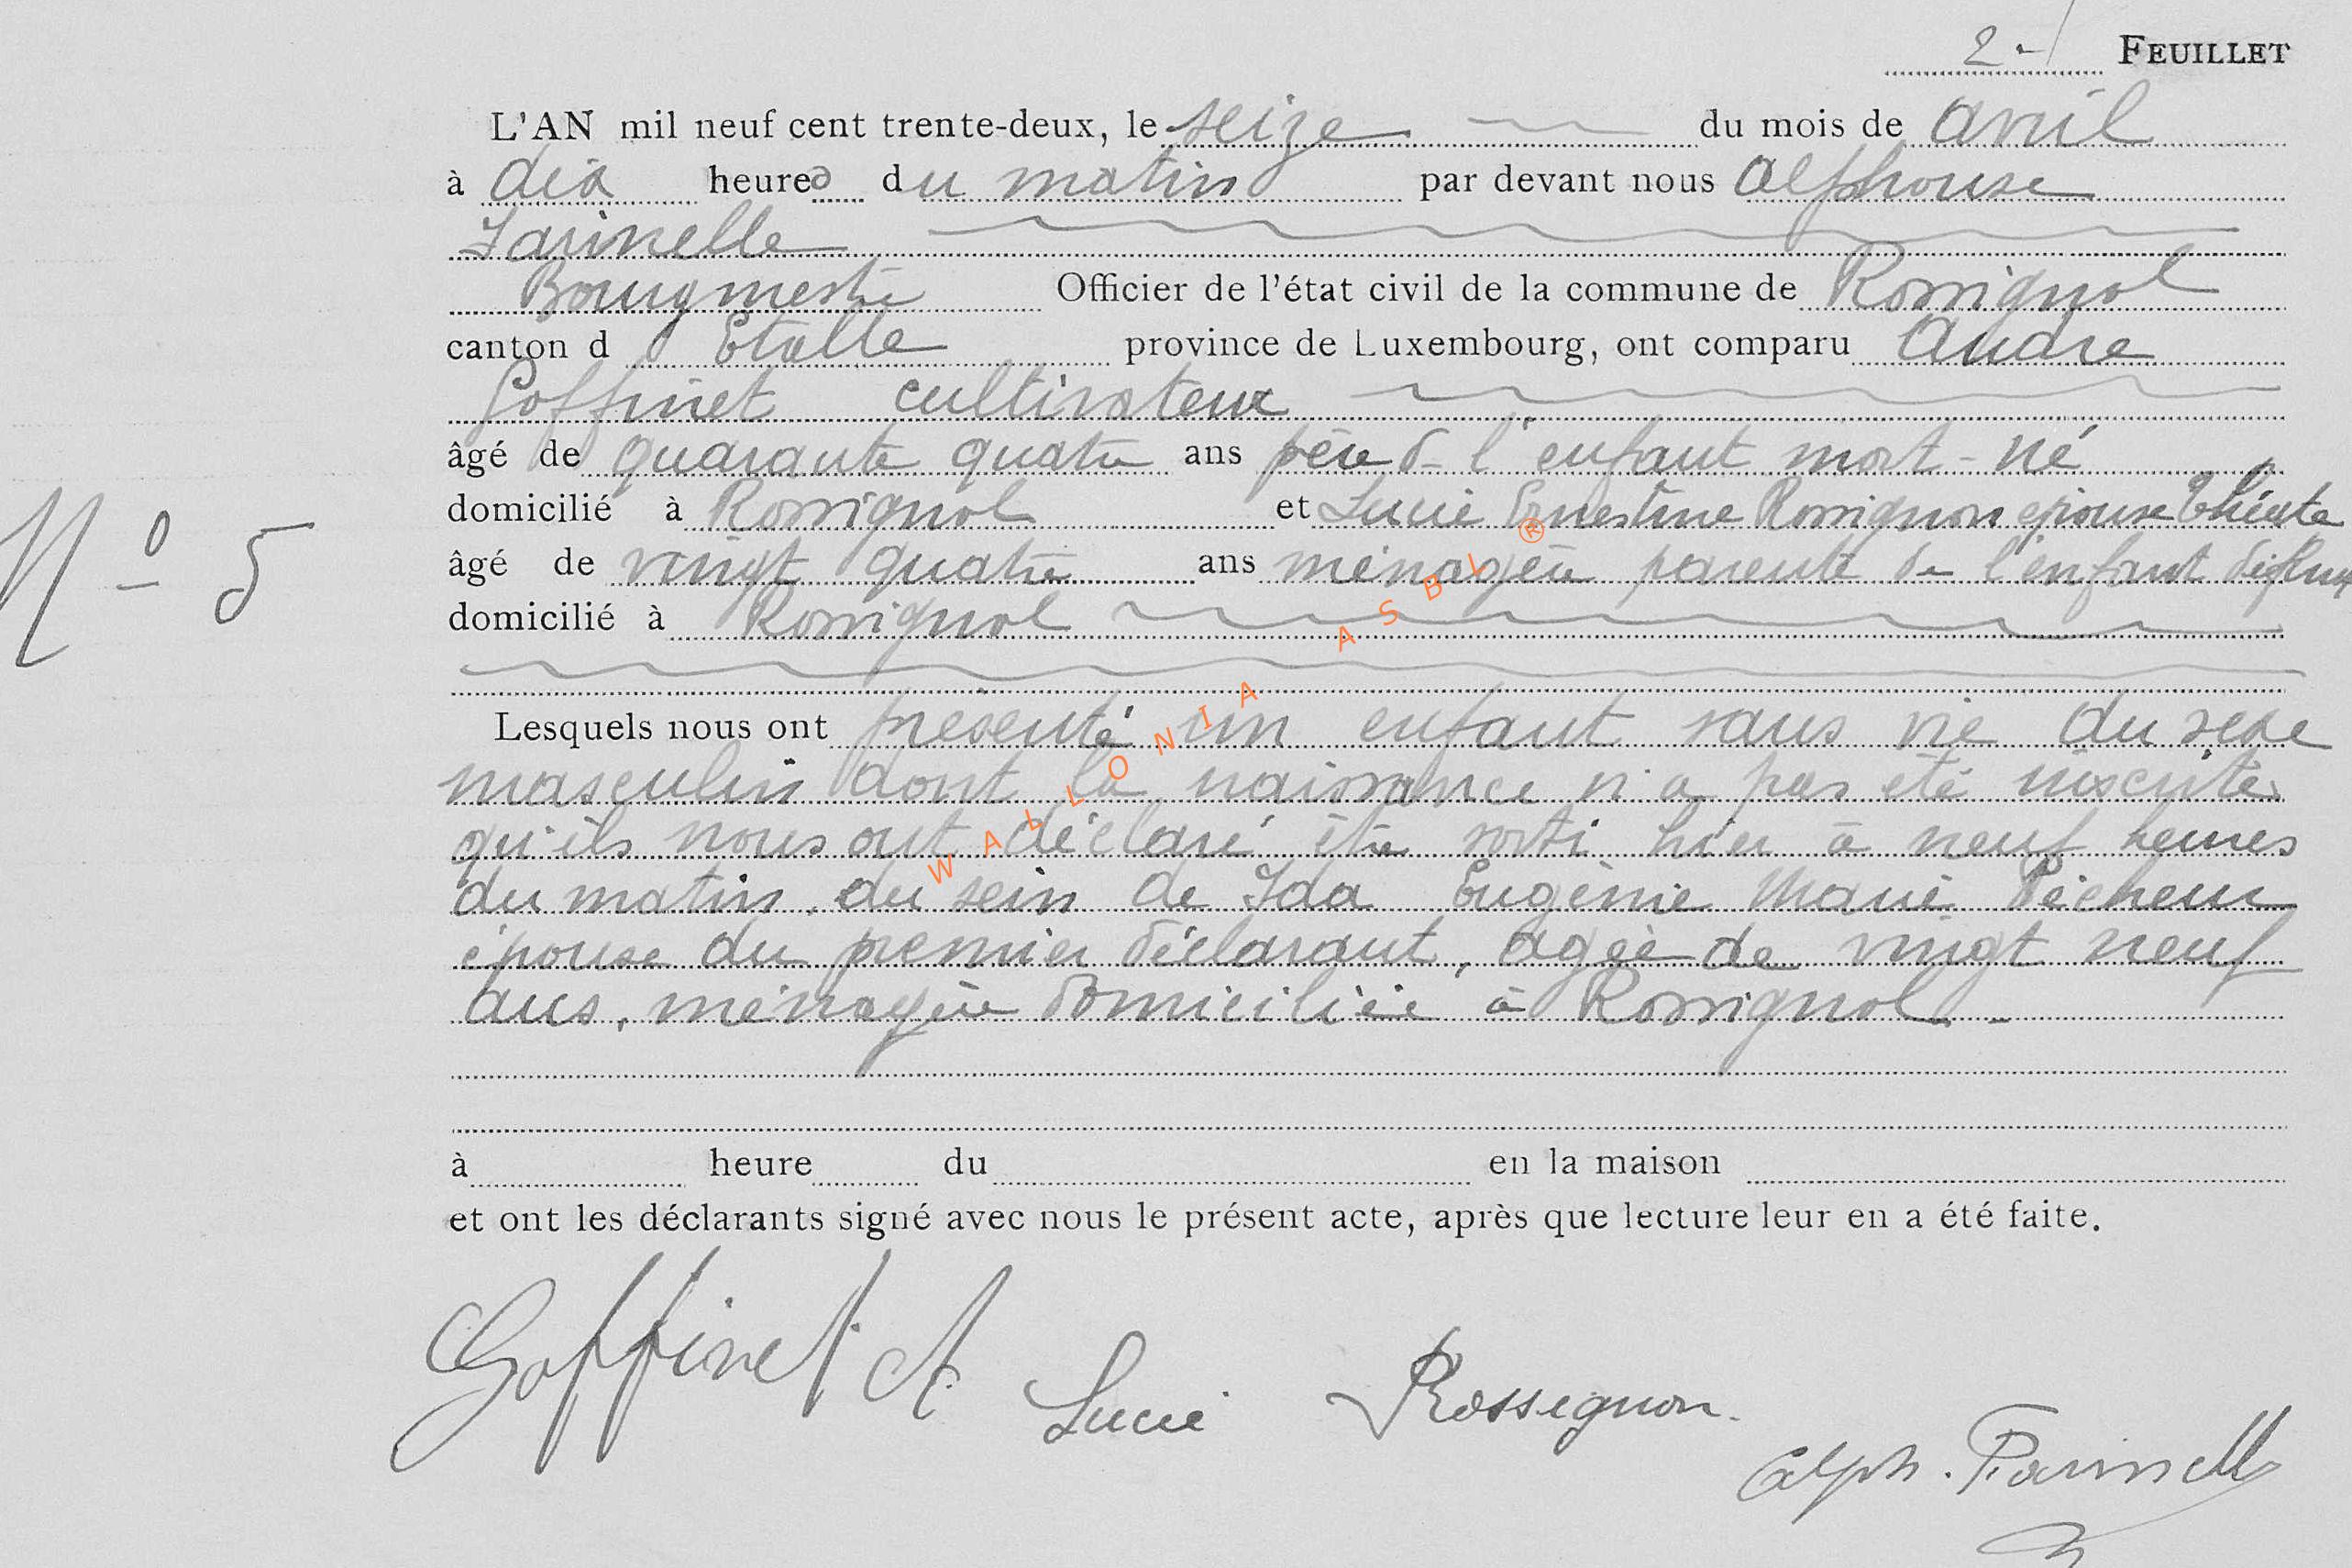 2 - FEUILLET
L'AN mil neuf cent trente-deux, le seize du mois de avril
à dix heures du matin par devant nous Alphonse
Farinelle
Bourgmestre Officier de l'état civil de la commune de Rossignol
canton d Etalle province de Luxembourg, ont comparu André
Goffinet cultivateur
âgé de quarante quatre ans père de l'enfant mort-né
domicilié à Rossignol et Lucie Ernestine Rossignon épouse
âgé de vingt quatre ans ménagère parente de l'enfant
domicilié à Rossignol
Nº 5
Lesquels nous ont présenté un enfant sans vie du sexe
masculin dont la naissance n'a pas été inscrite
qu'ils nous ont déclaré être sorti hier à neuf heures
du matin, du sein de Ida Eugénie Marie Pécheur
épouse du premier déclarant, agée de vingt neuf
ans, ménagère domiciliée à Rossignol.-
à heure du en la maison
et ont les déclarants signé avec nous le présent acte, après que lecture leur en a été faite.
Goffinet A
Lucie Rossignon.
Alph. Farinelle
WALLONIA ASBL ®